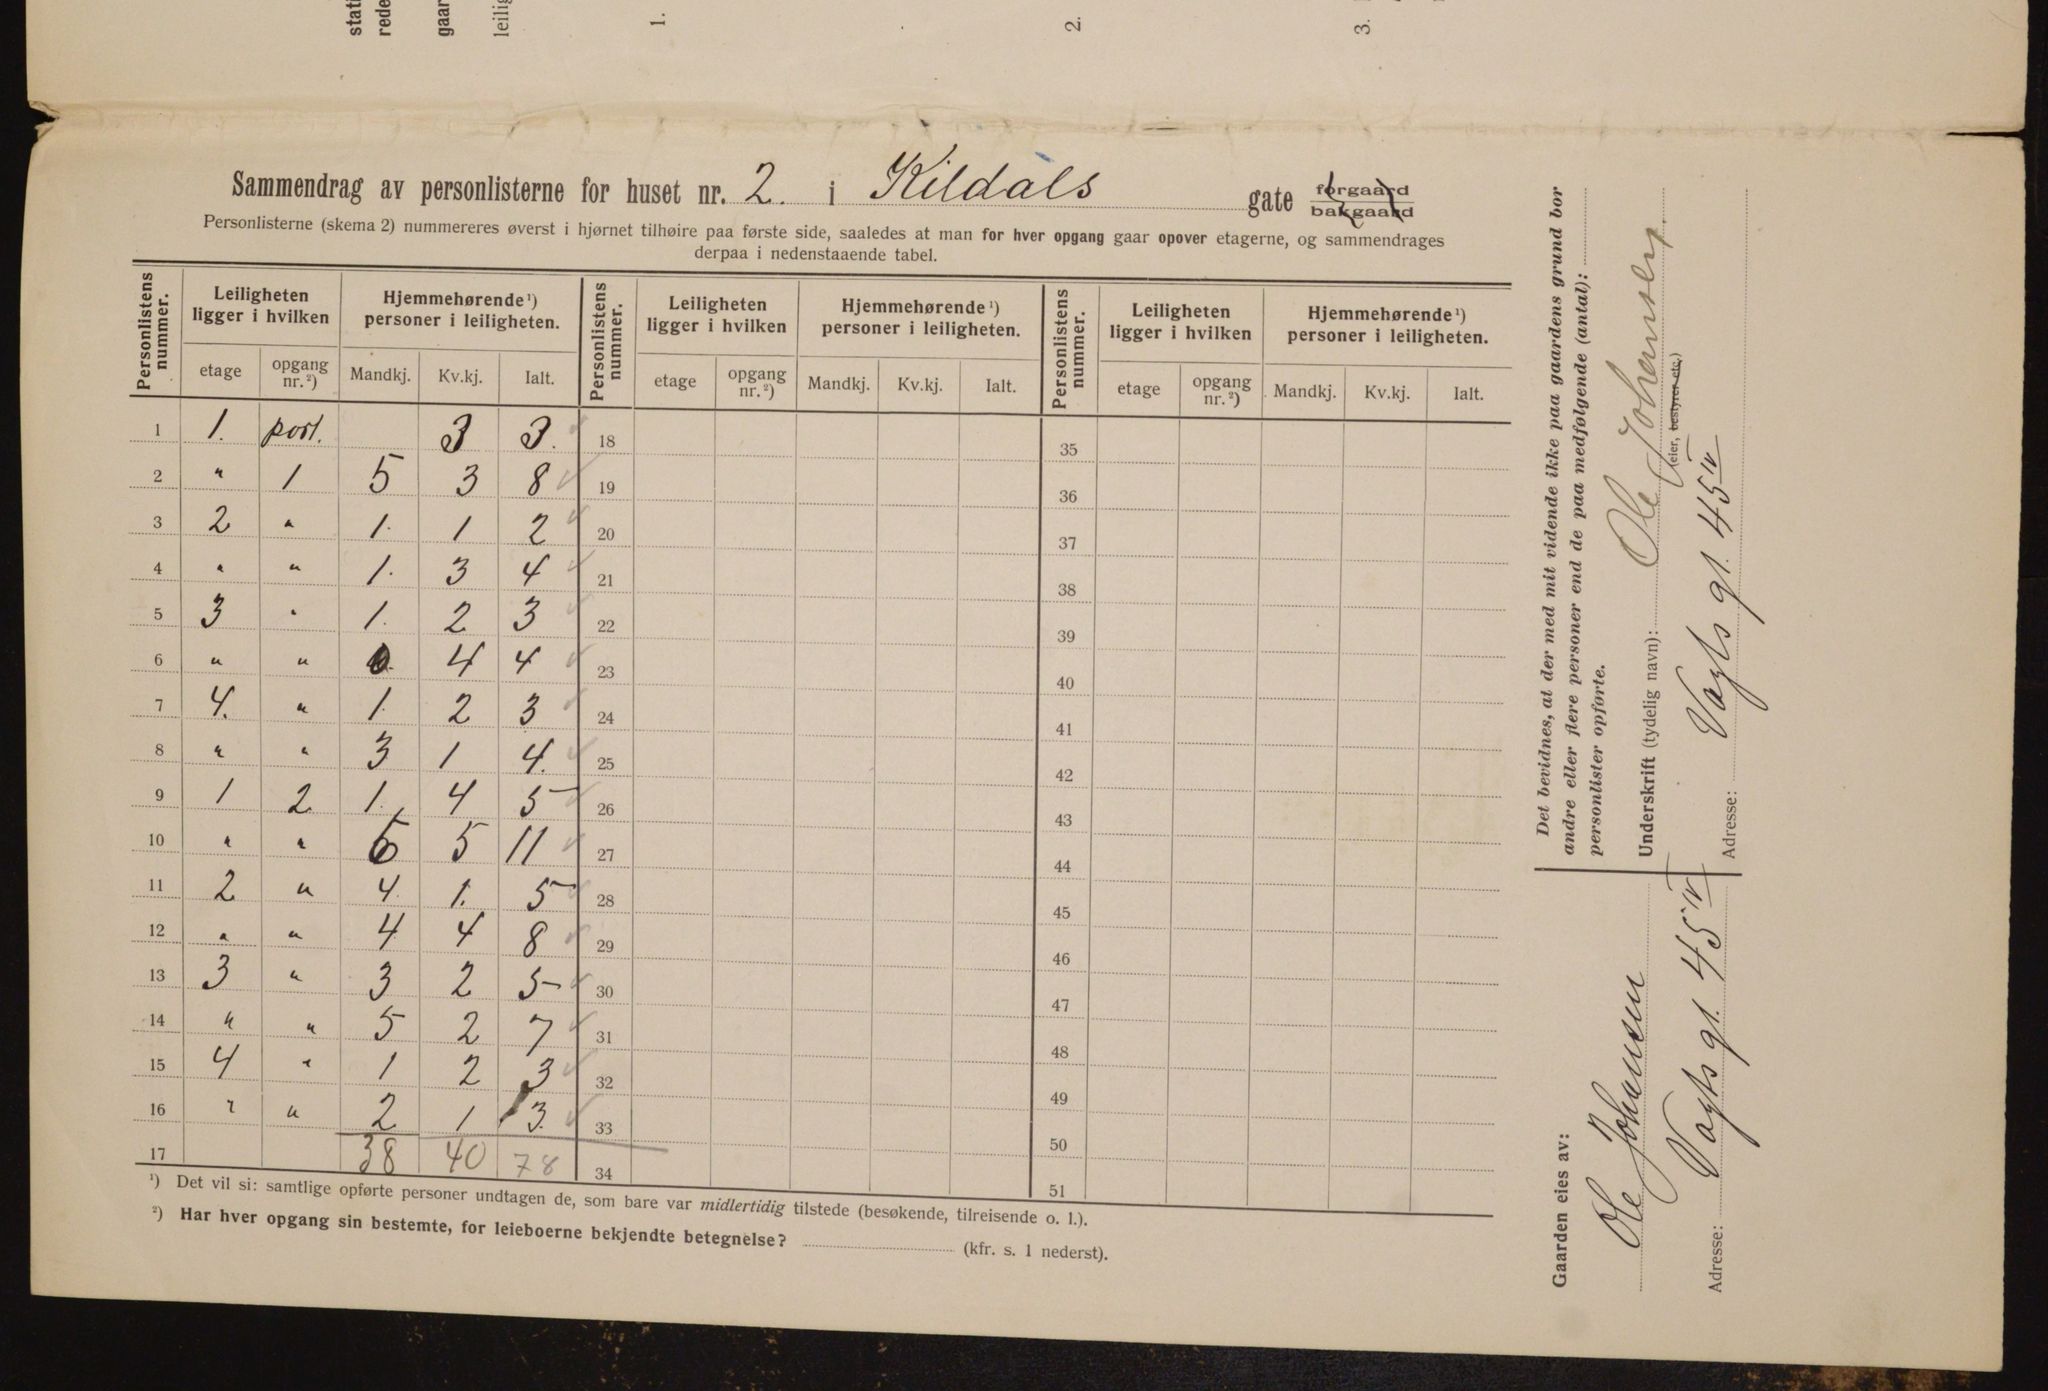 stati
rede
gaar
leilig
1.
2.
3.
Sammendrag av personlisterne for huset nr. 2. i Kildals gate forgaard bakgaard
Personlisterne (skema 2) nummereres øverst i hjørnet tilhøire paa første side, saaledes at man for hver opgang gaar opover etagerne, og sammendrages
derpaa i nedenstaaende tabel.
Personlistens nummer. Leiligheten ligger i hvilken Hjemmehørende ¹) personer i leiligheten. Personlistens nummer. Leiligheten ligger i hvilken Hjemmehørende ¹) personer i leiligheten. Personlistens nummer. Leiligheten ligger i hvilken Hjemmehørende ¹) personer i leiligheten.
etage opgang nr. ²) Mandkj. Kv.kj. Ialt. etage opgang nr. ²) Mandkj. Kv.kj. Ialt. etage opgang nr. ²) Mandkj. Kv.kj. Ialt.
1 1. port. 3 3. 18 35
2 " 1 5 3 8 19 36
3 2 " 1. 1 2 20 37
4 " " 1. 3 4 21 38
5 3 " 1. 2 3 22 39
6 " " 0. 4 4 23 40
7 4. " 1. 2 3 24 41
8 " " 3 1 4. 25 42
9 1 2 1. 4 5 26 43
10 " " 6 5 11 27 44
11 2 " 4. 1. 5 28 45
12 " " 4 4 8 29 46
13 3 " 3 2 5 30 47
14 " " 5 2 7 31 48
15 4 " 1 2 3 32 49
16 " " 2 1 3. 33 50
17 38 40 78 34 51
¹) Det vil si: samtlige opførte personer undtagen de, som bare var midlertidig tilstede (besøkende, tilreisende o. l.).
²) Har hver opgang sin bestemte, for leieboerne bekjendte betegnelse? (kfr. s. 1 nederst).
Det bevidnes, at der med mit vidende ikke paa gaardens grund bor
andre eller flere personer end de paa medfølgende (antal):
personlister opførte.
Underskrift (tydelig navn): Ole Johansen.
(eier, bestyrer etc.)
Adresse: Vogts gt. 45 IV
Gaarden eies av:
Ole Johansen
Adresse: Vogts gt. 45 IV